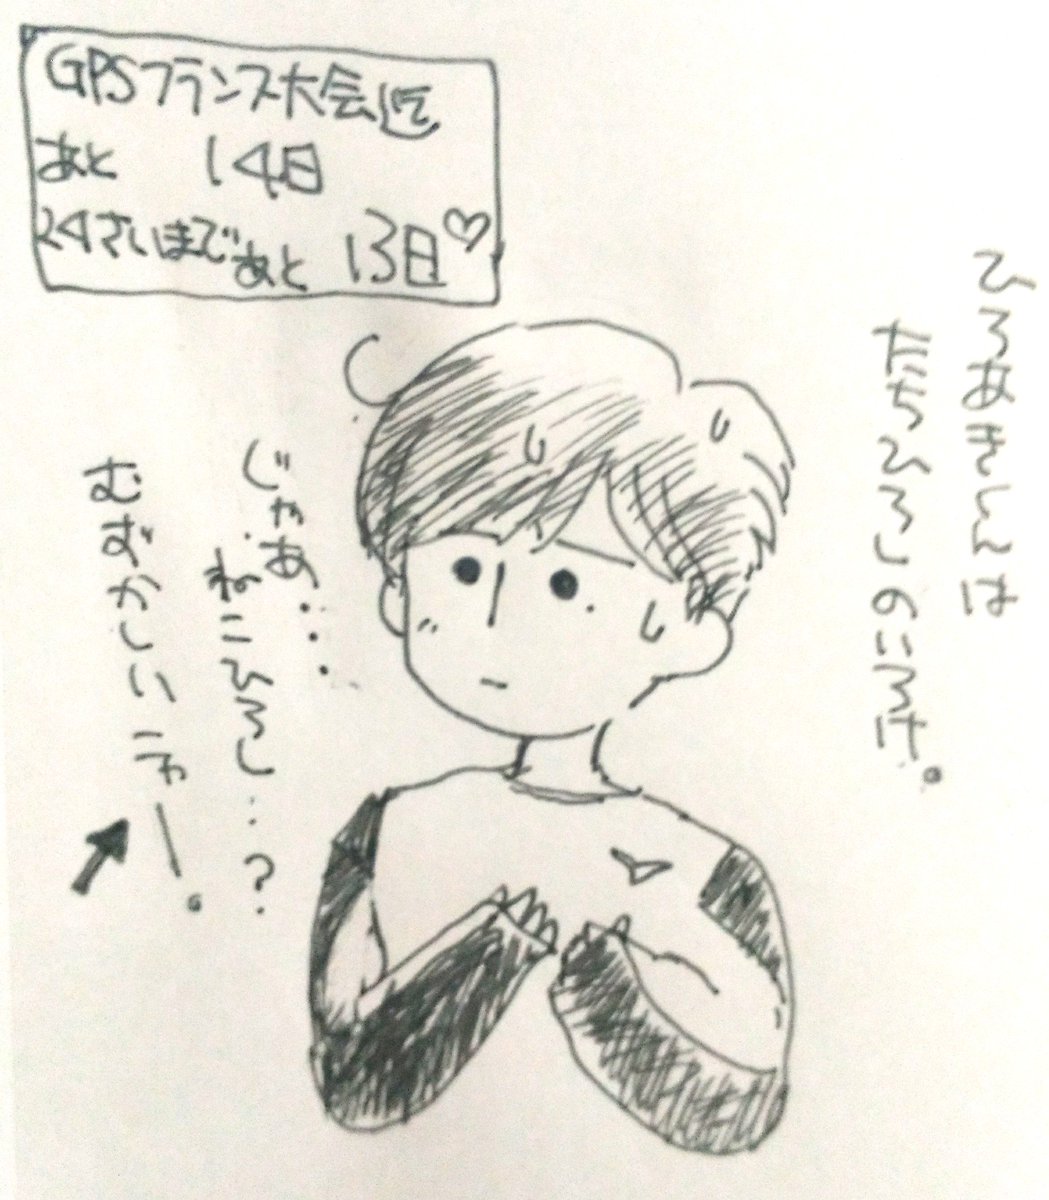 GPSフランス大会迄
あと 14日
24さいまであと 13日♡
ひろあきくんは
たちひろしのいろけ。
じゃあ...
ねこひろし...?
むずかしいニャー。